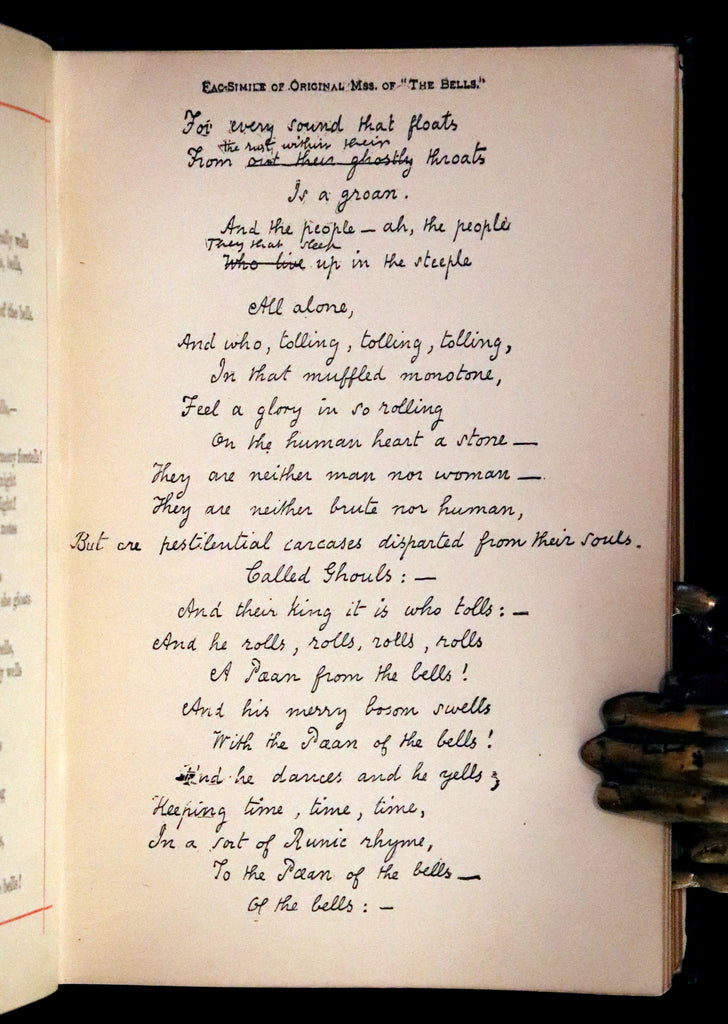 FAC-SIMILE OF ORIGINAL MSS. OF "THE BELLS."
For every sound that floats
the rust within their
From out their ghostly throats
Is a groan.
And the people — ah, the people
They that sleep
Who live up in the steeple
All alone,
And who, tolling, tolling, tolling,
In that muffled monotone,
Feel a glory in so rolling
On the human heart a stone —
They are neither man nor woman —
They are neither brute nor human,
But are pestilential carcases disparted from their souls.
Called Ghouls: —
And their king it is who tolls: —
And he rolls, rolls, rolls, rolls
A Pæan from the bells!
And his merry bosom swells
With the Pæan of the bells!
And he dances and he yells;
Keeping time, time, time,
In a sort of Runic rhyme,
To the Pæan of the bells —
Of the bells: —